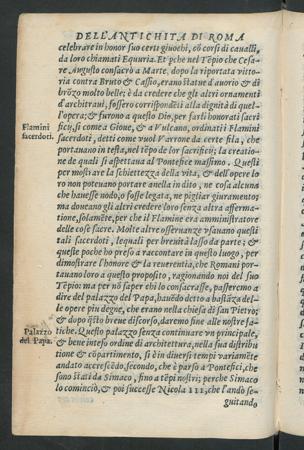 DELL'ANTICHITA DI ROMA
celebrare in honor suo certi giuochi, cō corsi di cavalli,
da loro chiamati Equuria. Et pche nel Tēpio che Cesa-
re Augusto consacrò a Marte, dopo la riportata vitto-
ria contra Bruto & Cassio, erano statue d'auorio & di
brōzo molto belle; è da credere che gli altri ornamenti
d'architraui, fossero corrispondēti alla dignità di quel-
l'opera; & furono a questo Dio, per farli honorati sacri-
Flamini
sacerdoti.
ficij, si come a Gioue, & a Vulcano, ordinati i Flamini
sacerdoti, detti come vuol Varrone da certe fila, che
portauano in testa, nel tēpo de lor sacrificij; la creatio-
ne de quali si aspettaua al Pontefice massimo. Questi
per mostrare la schiettezza della vita, & dell'opere lo
ro non poteuano portare anella in dito, ne cosa alcuna
che hauesse nodo, o fosse legata, ne pigliar giuramento;
ma doueano gli altri credere loro senza altra afferma-
tione, solamēte, per che il Flamine era amministratore
delle cose sacre. Molte altre osseruanze vsauano questi
tali sacerdoti, lequali per breuità lasso da parte; &
queste poche ho preso a raccontare in questo luogo, per
dimostrare l'honore & la reuerentia, che Romani por-
tauano loro a questo proposito, ragionando noi del suo
Tēpio: ma per nō saper chi lo consacrasse, passeremo a
dire del palazzo del Papa, hauēdo detto a bastāza del-
le opere piu degne, che erano nella chiesa di san Pietro;
& dopo q̄sto breue discorso, daremo fine alle nostre fa-
Palazzo
del Papa.
tiche. Questo palazzo senza continuare vn principale,
& bene inteso ordine di architettura, nella sua distribu
tione & cōpartimento, si è in diuersi tempi variamēte
andato accrescēdo, secondo, che è parso a Pontefici, che
sono stati da Simaco, fino a tēpi nostri; perche Simaco
lo cominciò, & poi successe Nicola III, che l'andò se-
guitando